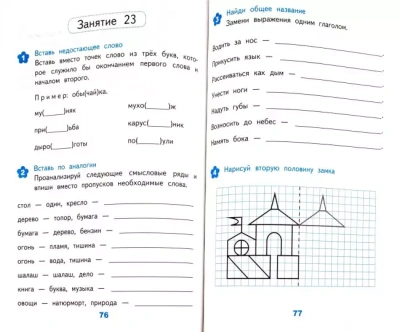 Занятие 23
1 Вставь недостающее слово
Вставь вместо точек слово из трёх букв, кото-
рое служило бы окончанием первого слова и
началом второго.
Пример: обы(чай)ка.
му( )няк мухо( )ж
при( )ьба карус( )ник
дыро( )готы по( )ули
2 Вставь по аналогии
Проанализируй следующие смысловые ряды и
впиши вместо пропусков необходимые слова.
стол — один, кресло —
дерево — топор, бумага —
бумага — дерево, бензин —
огонь — пламя, тишина —
огонь — вода, тишина —
шалаш — шалаш, дело —
книга — буква, музыка —
овощи — натюрморт, природа —
76
3 Найди общее название
Замени выражения одним глаголом.
Водить за нос —
Прикусить язык —
Рассеиваться как дым —
Унести ноги —
Надуть губы —
Возносить до небес —
Намять бока —
4 Нарисуй вторую половину замка
77